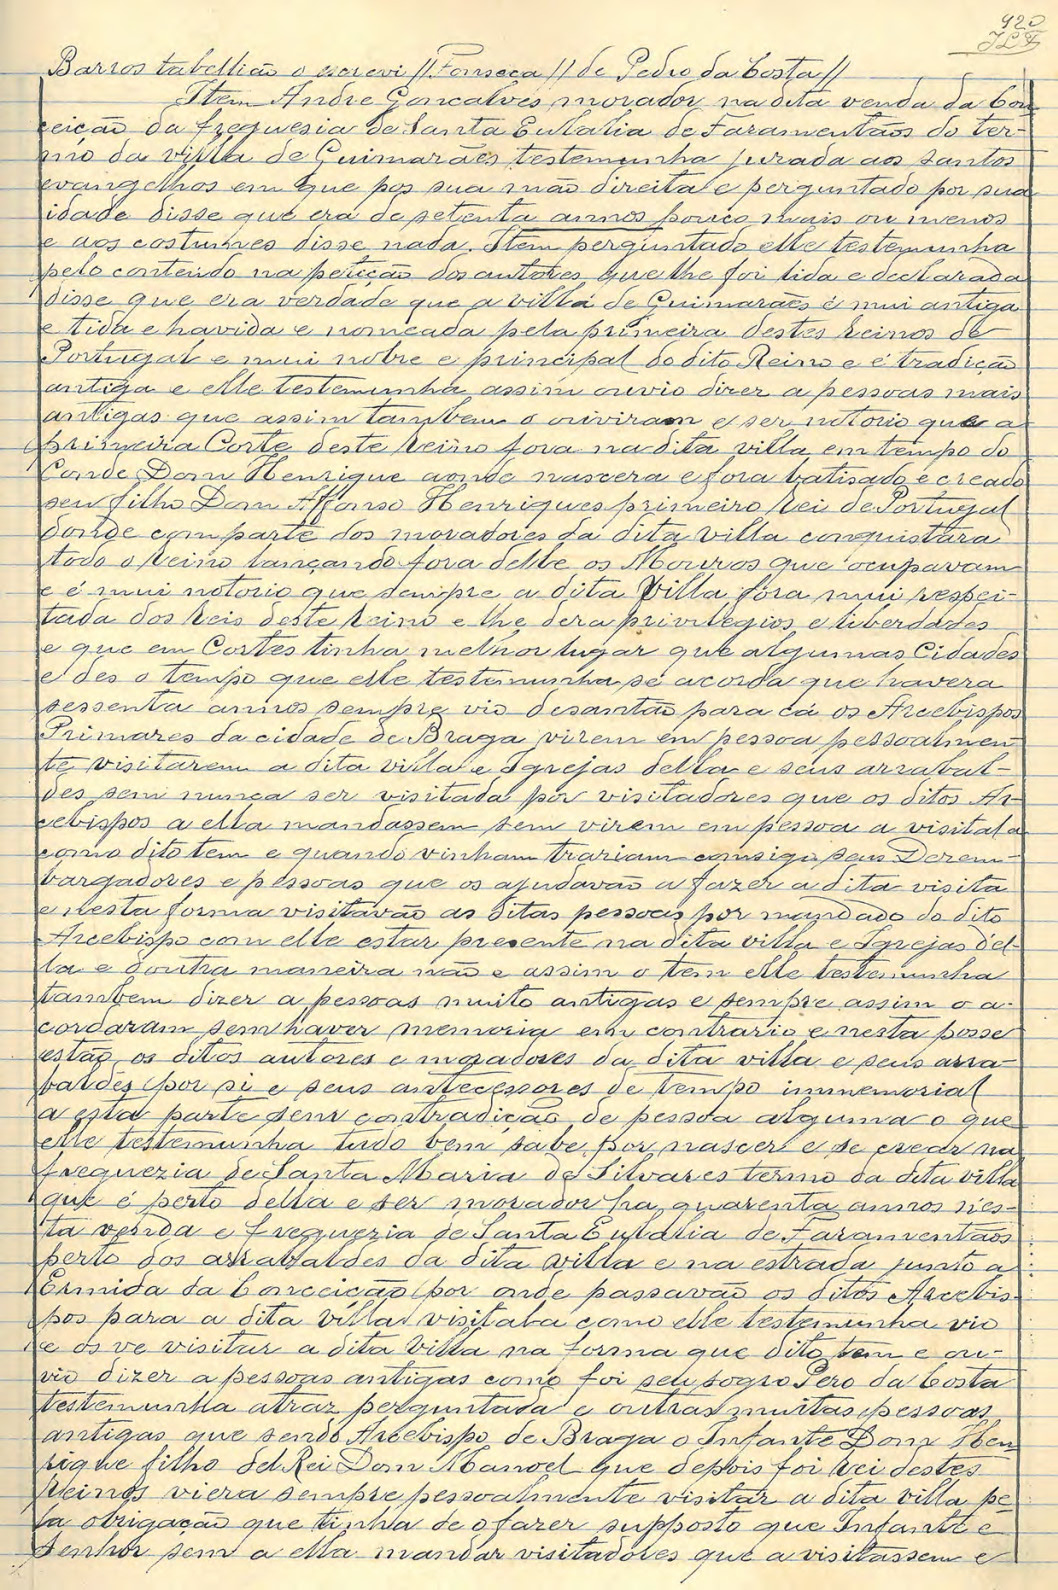 920
Barros tabellião o escrevi // Fonseca // de Pedro da Costa //
Item Andre Goncalves morador na dita venda da Con-
ceição da freguesia de Santa Eulalia de Faramentãos do ter-
mo da villa de Guimarães testemunha jurada aos santos
evangelhos em que pos sua mão direita e perguntado por sua
idade disse que era de setenta annos pouco mais ou menos
e aos costumes disse nada. Item perguntado elle testemunha
pelo conteudo na petição dos autores que lhe foi lida e declarada
disse que era verdade que a villa de Guimarães é mui antiga
e tida e havida e nomeada pela primeira destes reinos de
Portugal e mui nobre e principal do dito Reino e é tradição
antiga e elle testemunha assim ouvio dizer a pessoas mais
antigas que assim tambem o ouviram e ser notorio que a
primeira Corte deste reino fora na dita villa em tempo do
Conde Dom Henrique aonde nascera e fora batisado e creado
seu filho Dom Affonso Henriques primeiro rei de Portugal
donde com parte dos moradores da dita villa conquistara
todo o reino lançando fora delle os Mouros que ocupavam
e é mui notorio que sempre a dita Villa fora mui respei-
tada dos reis deste reino e lhe dera privilegios e liberdades
e que em Cortes tinha melhor lugar que algumas Cidades
e des o tempo que elle testemunha se acorda que havera
sessenta annos sempre vio desantão para cá os Arcebispos
Primares da cidade de Braga virem em pessoa pessoalmen-
te visitarem a dita villa e Igrejas della e seus arrabal-
des sem nunca ser visitada por visitadores que os ditos Ar-
cebispos a ella mandassem sem virem em pessoa a visitala
como dito tem e quando vinham traziam comsigo seus Dezem-
bargadores e pessoas que os ajudavão a fazer a dita visita
e nesta forma visitavão as ditas pessoas por mandado do dito
Arcebispo com elle estar presente na dita villa e Igrejas del-
la e doutra maneira não e assim o tem elle testemunha
tambem dizer a pessoas muito antigas e sempre assim o a-
cordaram sem haver memoria em contrario e nesta posse
estão os ditos autores e moradores da dita villa e seus arra-
baldes por si e seus antecessores de tempo immemorial
a esta parte sem contradição de pessoa alguma o que
elle testemunha tudo bem sabe por nascer e se crear na
freguezia de Santa Maria de Silvares termo da dita villa
que é perto della e ser morador ha quarenta annos nes-
ta venda e freguezia de Santa Eulalia de Faramentãos
perto dos arrabaldes da dita villa e na estrada junto a
Ermida da Conceição por onde passavão os ditos Arcebis-
pos para a dita villa visitaba como elle testemunha vio
e os ve visitar a dita Villa na forma que dito tem e ou-
vio dizer a pessoas antigas como foi seu sogro Pero da Costa
testemunha atraz perguntada e outras muitas pessoas
antigas que sendo Arcebispo de Braga o Infante Dom Hen-
rique filho del Rei Dom Manoel que depois foi rei destes
Reinos viera sempre pessoalmente visitar a dita villa pe-
la obrigação que tinha de o fazer supposto que Infante e
Senhor sem a ella mandar visitadores que a visitassem e